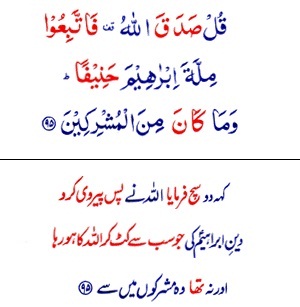 قُلْ صَدَقَ اللّٰهُ ۫ فَاتَّبِعُوْا
مِلَّةَ اِبْرٰهِيْمَ حَنِيْفًا ؕ
وَمَا كَانَ مِنَ الْمُشْرِكِيْنَ ﴿۹۵﴾
کہہ دو سچ فرمایا اللہ نے پس پیروی کرو
دینِ ابراہیمؑ کی جو سب سے کٹ کر اللہ کا ہو رہا
اور نہ تھا وہ مشرکوں میں سے ﴿۹۵﴾